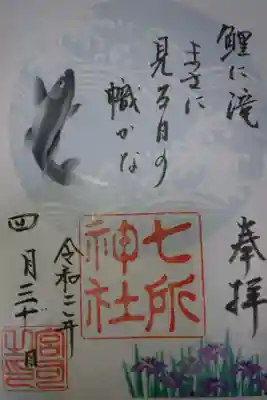 奉拝
鯉に滝
まさに
見る目の
幟かな
七所
神社
令和二年
四月三十日